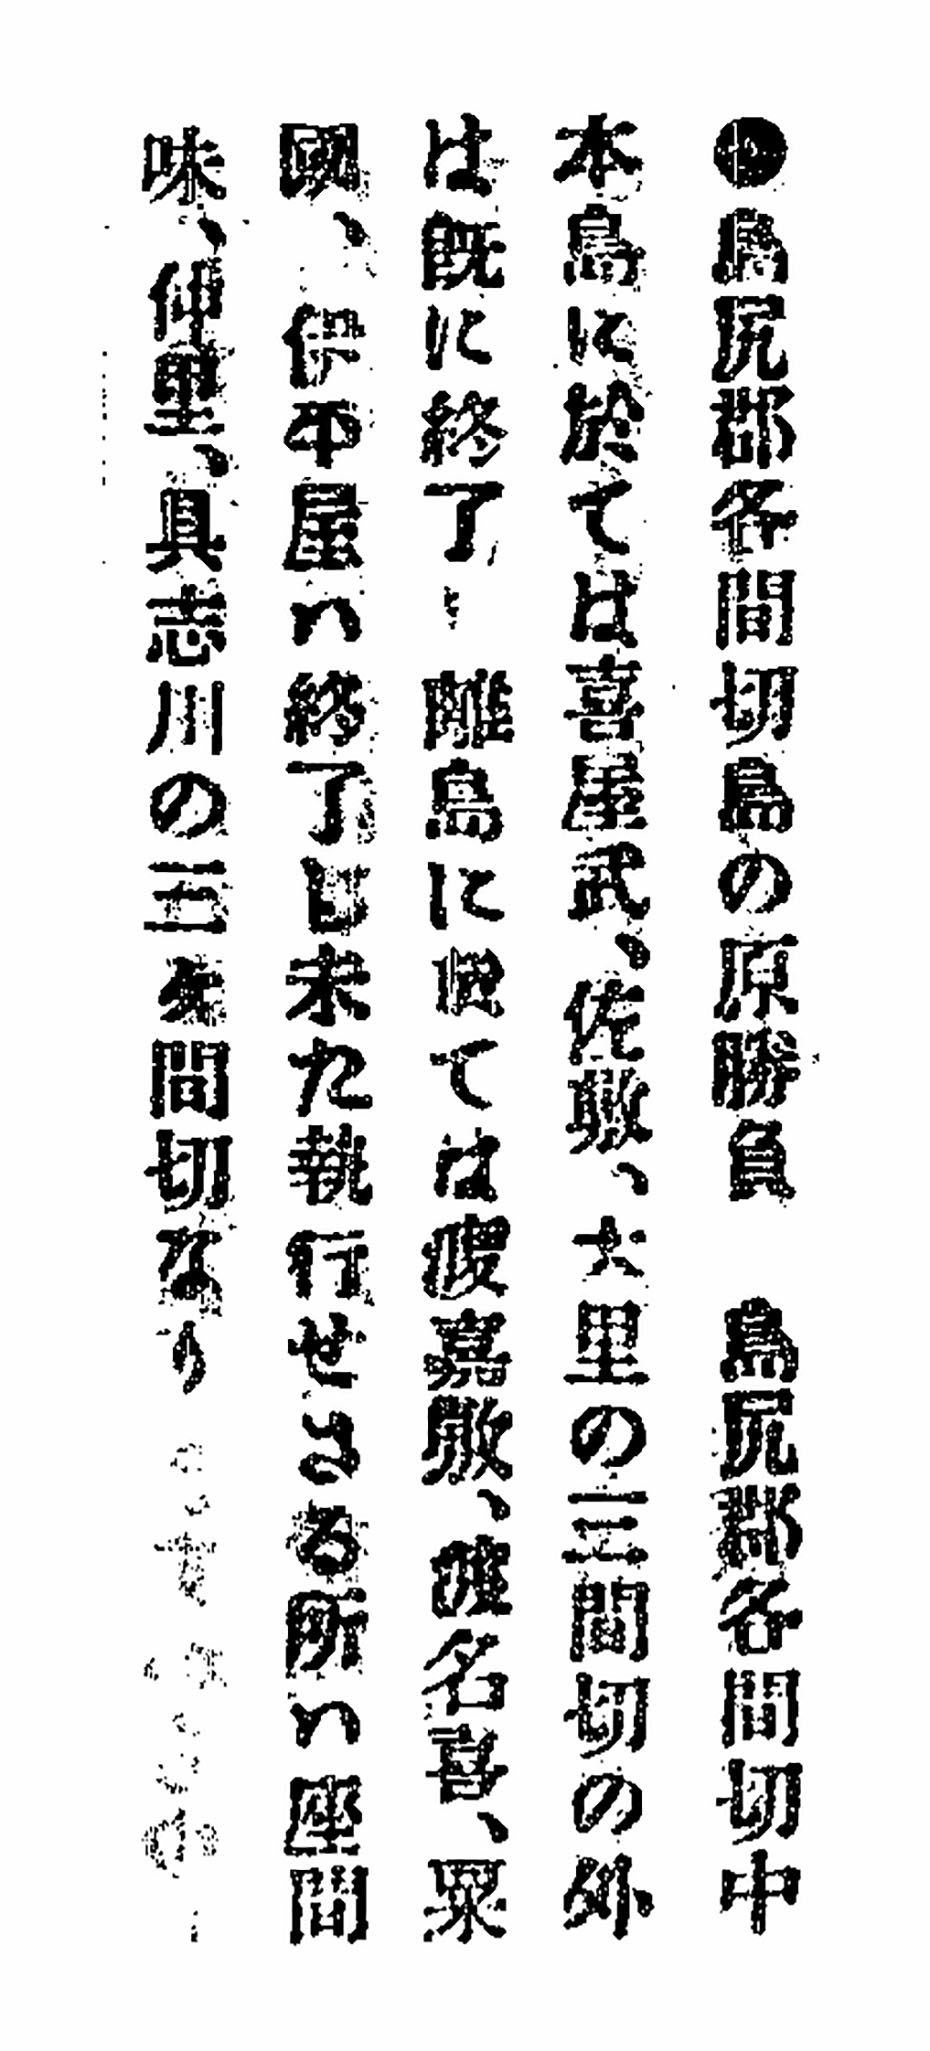 ●島尻郡各間切島の原勝負　島尻郡各間切中
本島に於ては喜屋武、佐敷、大里の三間切の外
は既に終了し離島に於ては渡嘉敷、渡名喜、粟
國、伊平屋ハ終了し未た執行せさる所ハ座間
味、仲里、具志川の三ヶ間切なり